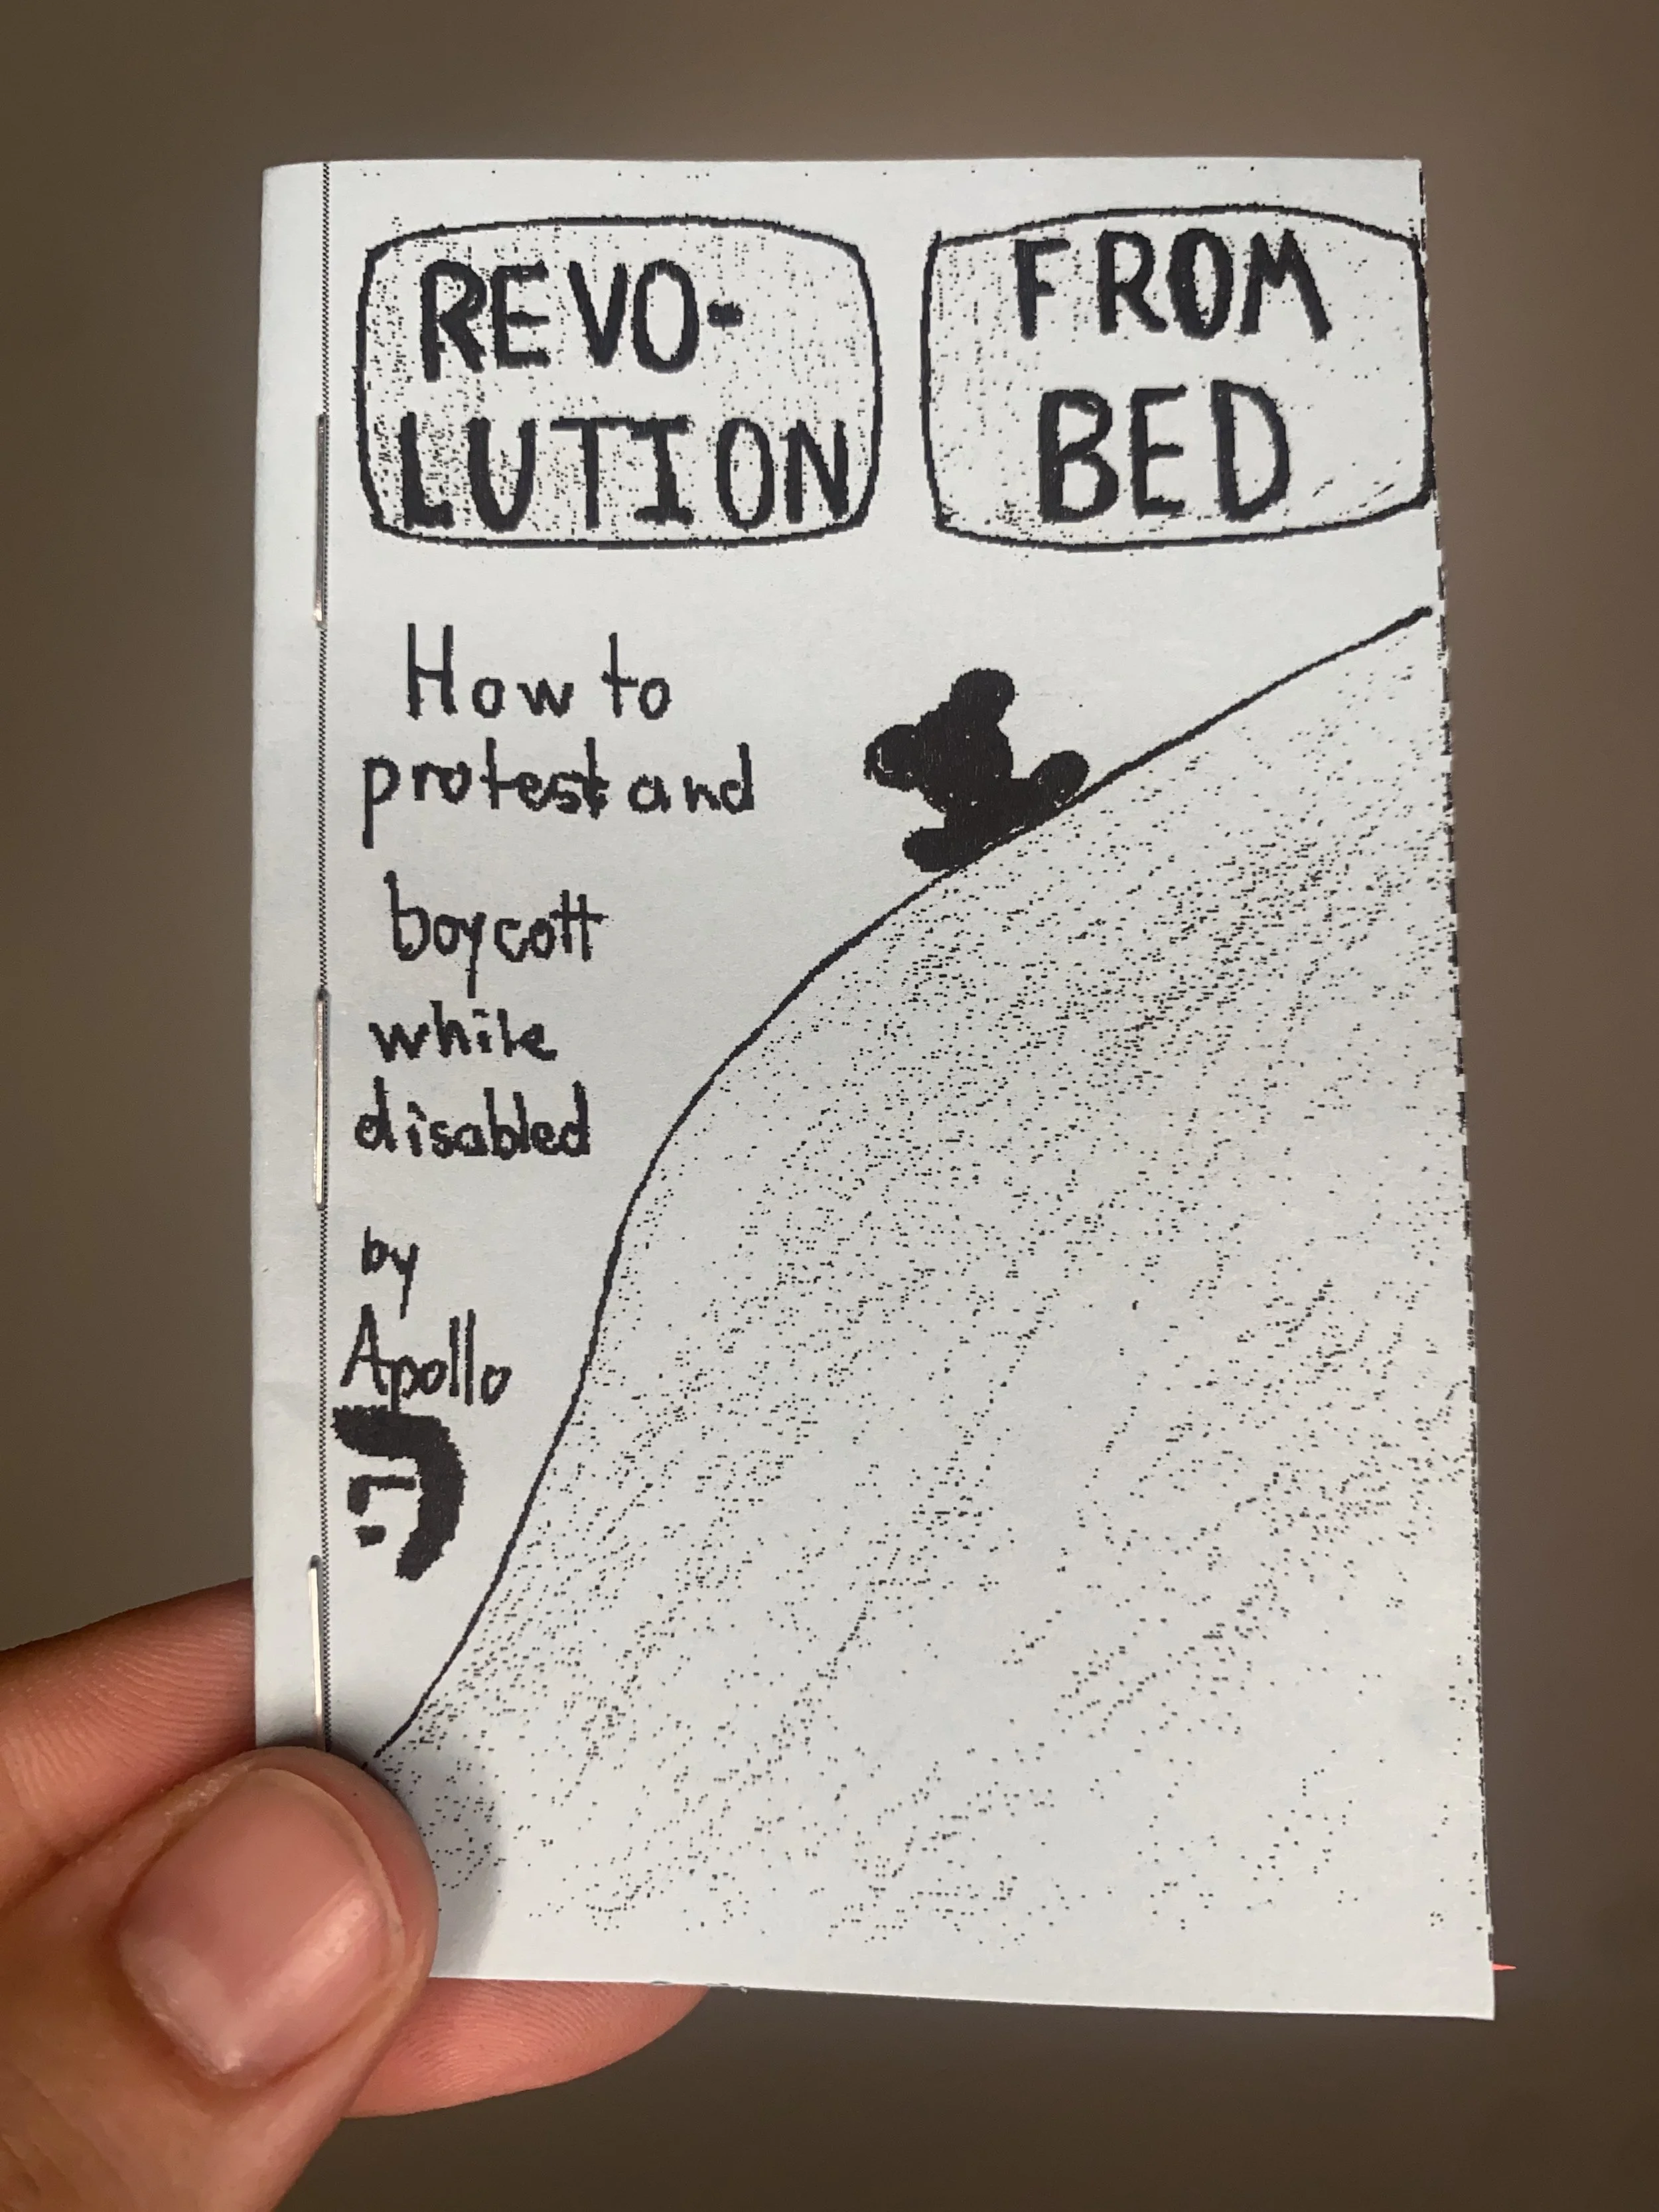 REVO-
LUTION
FROM
BED
How to
protest and
boycott
while
disabled
by
Apollo